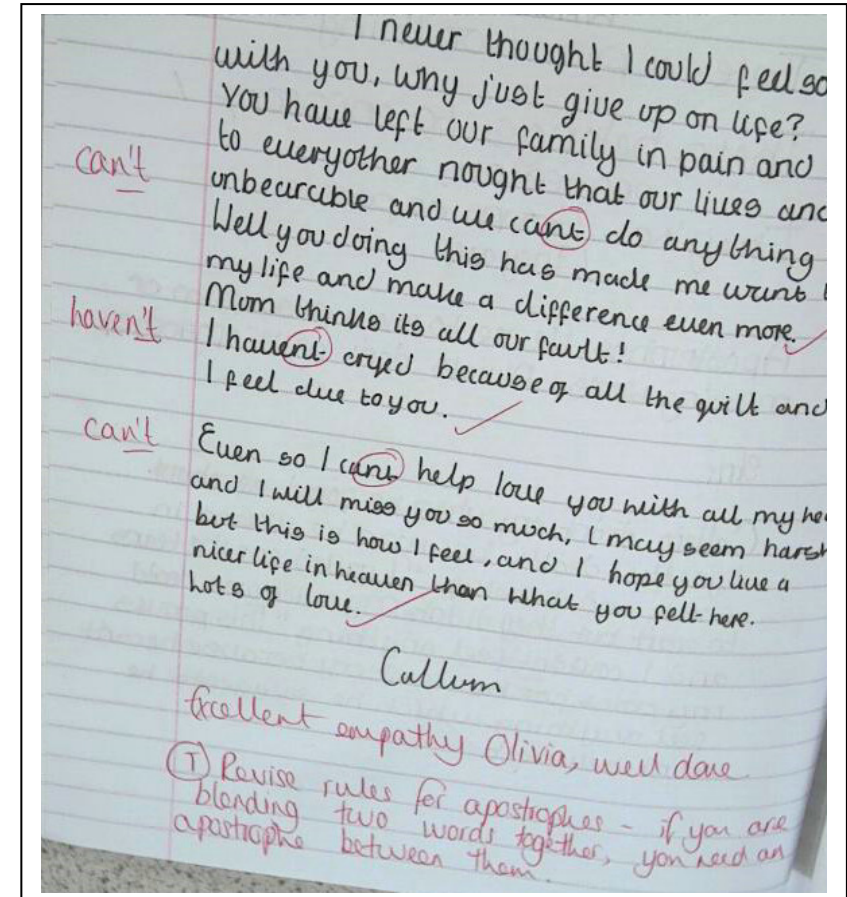 I never thought I could feel so
with you, why just give up on life?
You have left our family in pain and
can't
to everyother nought that our lives and
unbearable and we cant do anything
Well you doing this has made me want
my life and make a difference even more.
haven't
Mom thinks its all our fault!
I havent cryed because of all the guilt and
I feel due to you.
can't
Even so I cant help love you with all my he
and I will miss you so much, I may seem harsh
but this is how I feel, and I hope you live a
nicer life in heaven than what you felt here.
hots of love.
Callum
Excellent empathy Olivia, well done
T Revise rules for apostrophes - if you are
blending two words together, you need an
apostrophe between them.